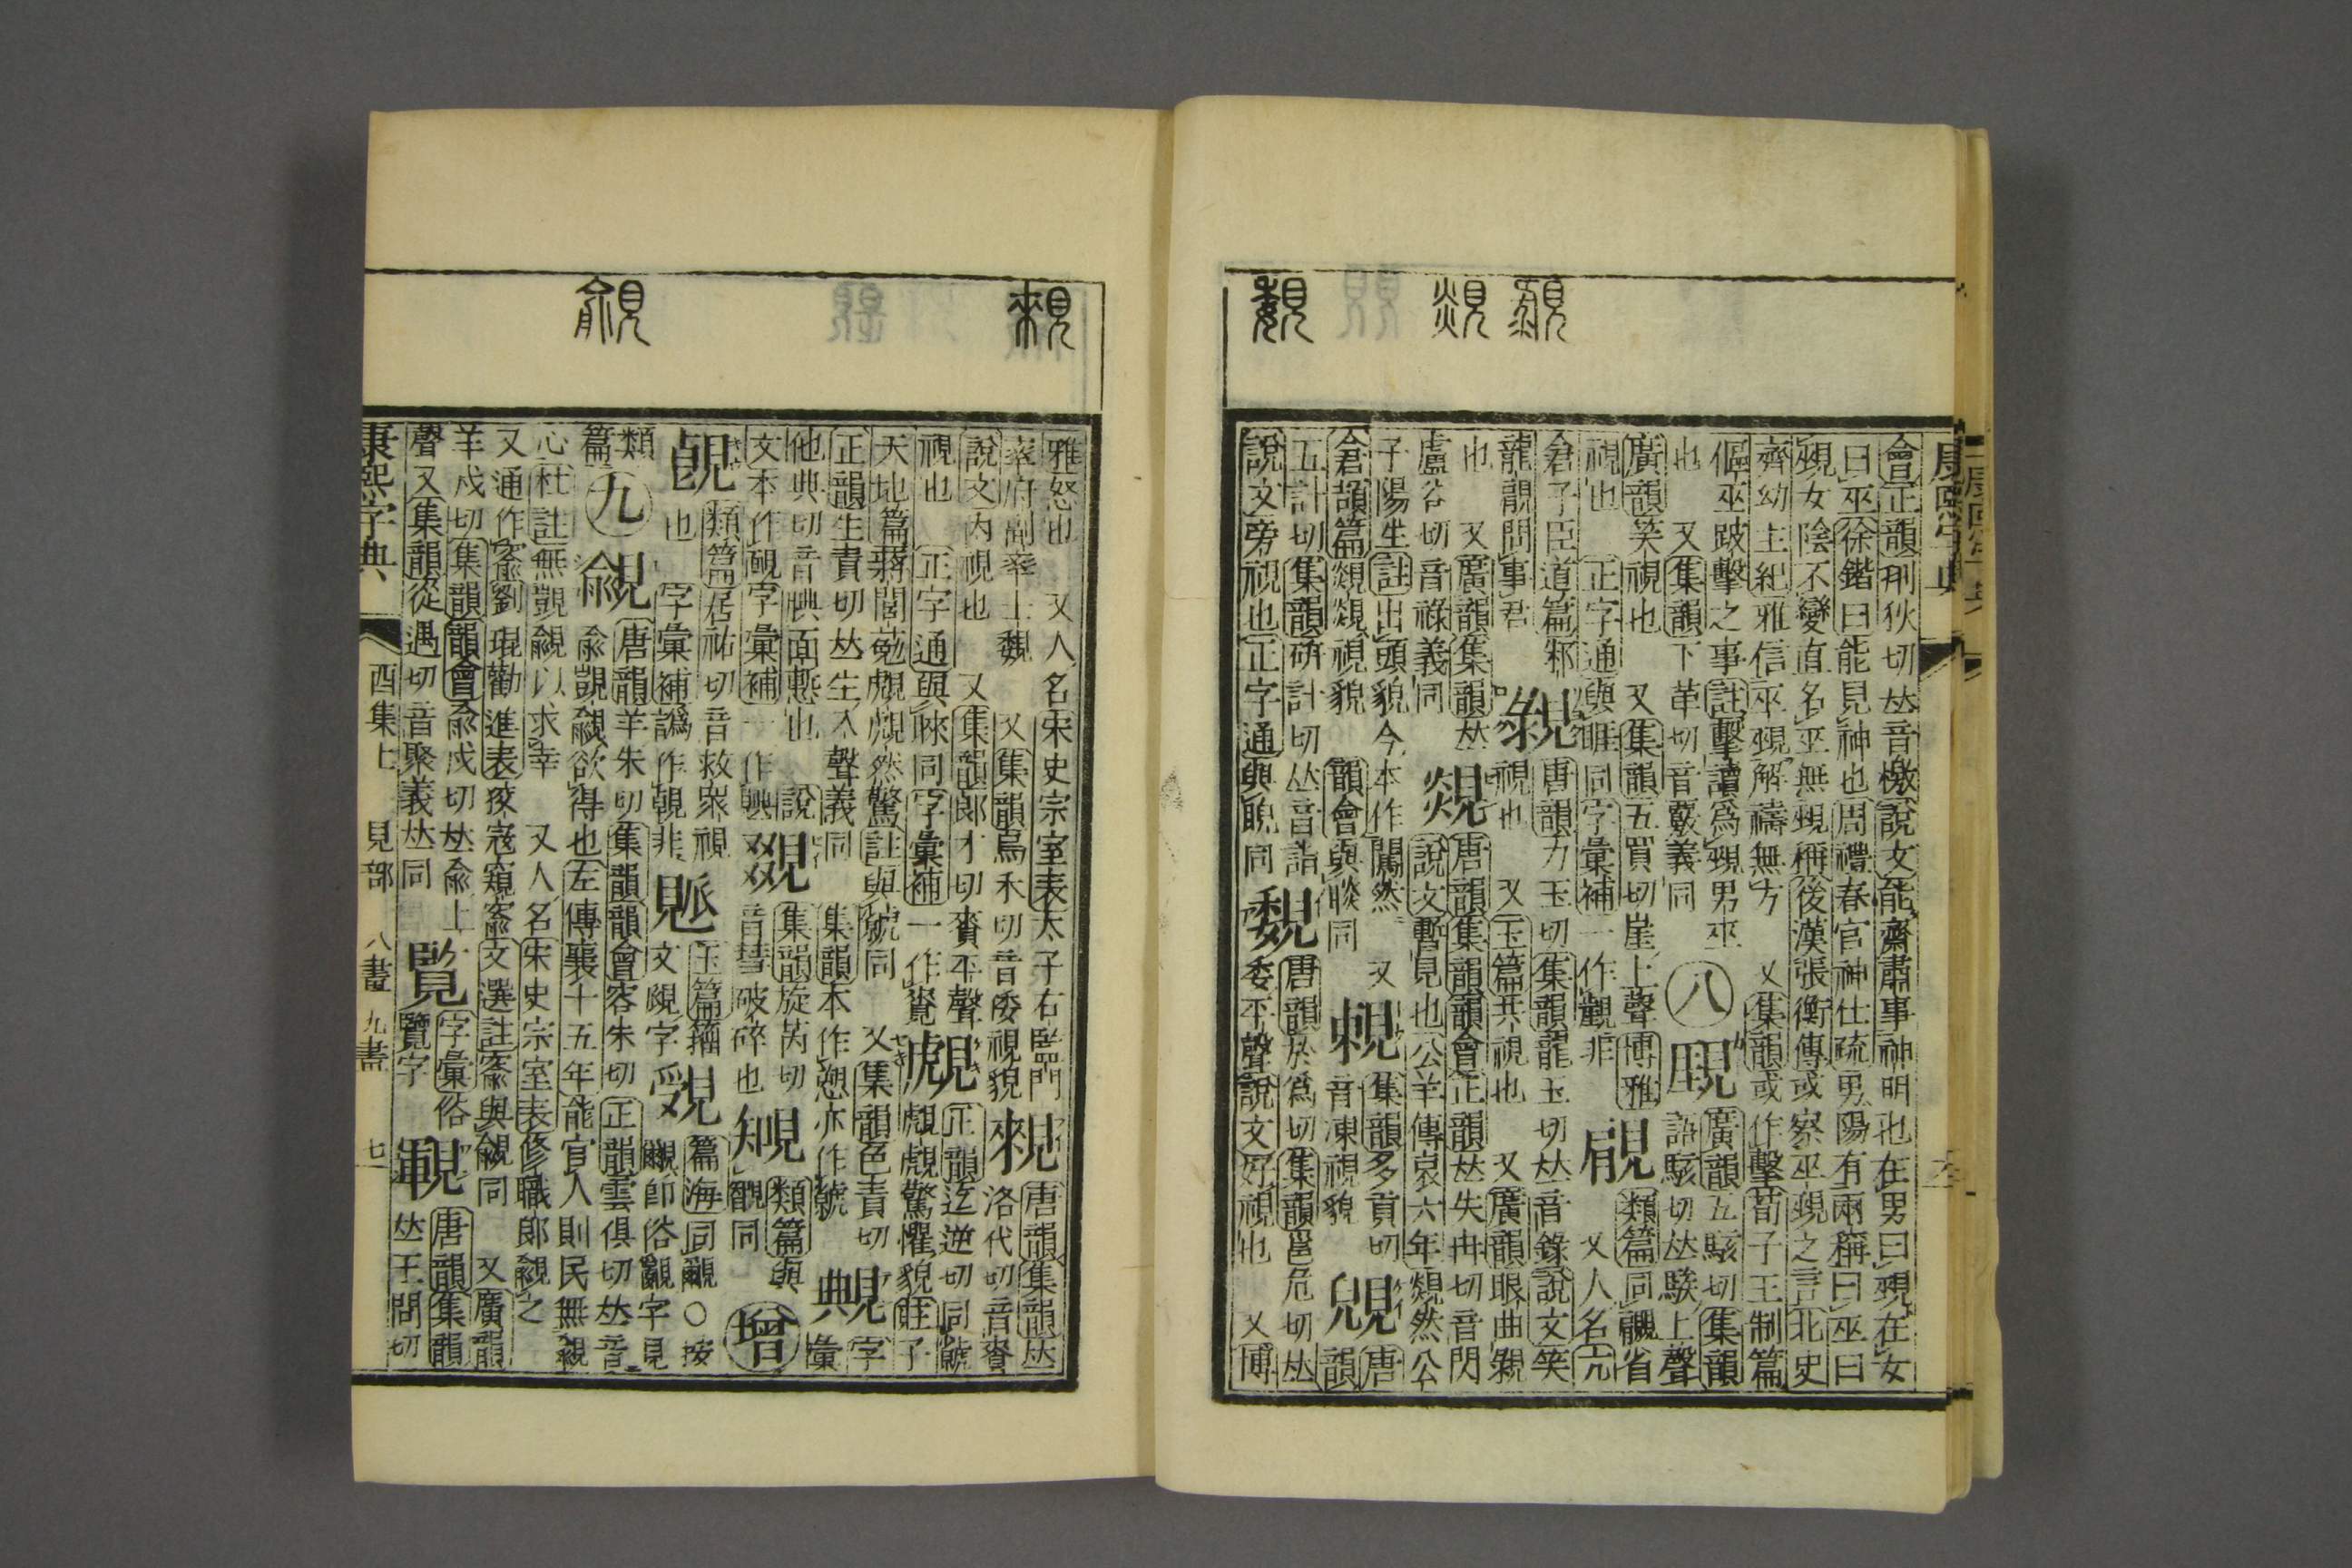 會正韻刑狄切𠀤音檄說文能齋肅事神明也在男曰覡在女
曰巫徐鍇曰能見神也周禮春官神仕疏男陽有兩稱曰巫曰
覡女陰不變直名巫無覡稱後漢張衡傳或察巫覡之言北史
齊幼主紀雅信巫覡解禱無方 又集韻或作擊荀子王制篇
傴巫跛擊之事註擊讀爲覡男巫
也 又集韻下革切音覈義同
八
廣韻五駭切集韻
語駭切𠀤騃上聲
廣韻笑視也 又集韻五買切崖上聲博雅
視也 正字通與睚同字彙補一作觀非
類篇同覵省
又人名亢
倉子臣道篇
龍 問事君
唐韻力玉切集韻龍玉切𠀤音錄說文笑
視也 又玉篇共視也 又廣韻眼曲
也 又廣韻集韻𠀤
盧谷切音祿義同
覢
唐韻集韻韻會正韻𠀤失冉切音閃
說文暫見也公羊傳哀六年覢然公
子陽生註出頭貌今本作闖然 又
倉頡篇覢覢視貌 韻會與睒同
集韻多貢切
音凍視貌
唐
韻
五計切集韻硏計切𠀤音詣
說文旁視也正字通與睨同
覣
唐韻於爲切集韻邕危切𠀤
委平聲說文好視也 又博
雅怒也 又人名宋史宗室表太子右監門
率府副率士覣 又集韻烏禾切音倭視貌
唐韻集韻𠀤
洛代切音賚
說文內視也 又集韻郞才切賚平聲
視也 正字通與睞同字彙補一作
覤
正韻迄逆切同虩
覤覤驚懼貌莊子
天地篇蔣閭葂覤覤然驚註與虩同 又集韻色責切
正韻生責切𠀤生入聲義同 集韻本作愬亦作虩
字
彙
他典切音腆面慙也 說
文本作䩄字彙補一作
集韻旋芮切
音彗破碎也
類篇與
同
增
類篇居祐切音救衆視
也 字彙補譌作 非
玉篇籀
文 字
篇海同覼○按
覼卽俗 字見
類
篇
九
覦
唐韻羊朱切集韻韻會容朱切正韻雲俱切𠀤音
兪覬覦欲得也左傳襄十五年能官人則民無覦
心杜註無覬覦以求幸 又人名宋史宗室表修職郞覦之
又通作窬劉琨勸進表狡寇窺窬文選註窬與覦同 又廣韻
羊戍切集韻韻會兪戍切𠀤兪上
聲又集韻從遇切音聚義𠀤同
覧
字彙俗
覽字
唐韻集韻
𠀤王問切
康熙字典
酉集上 見部 八畫 九畫 七